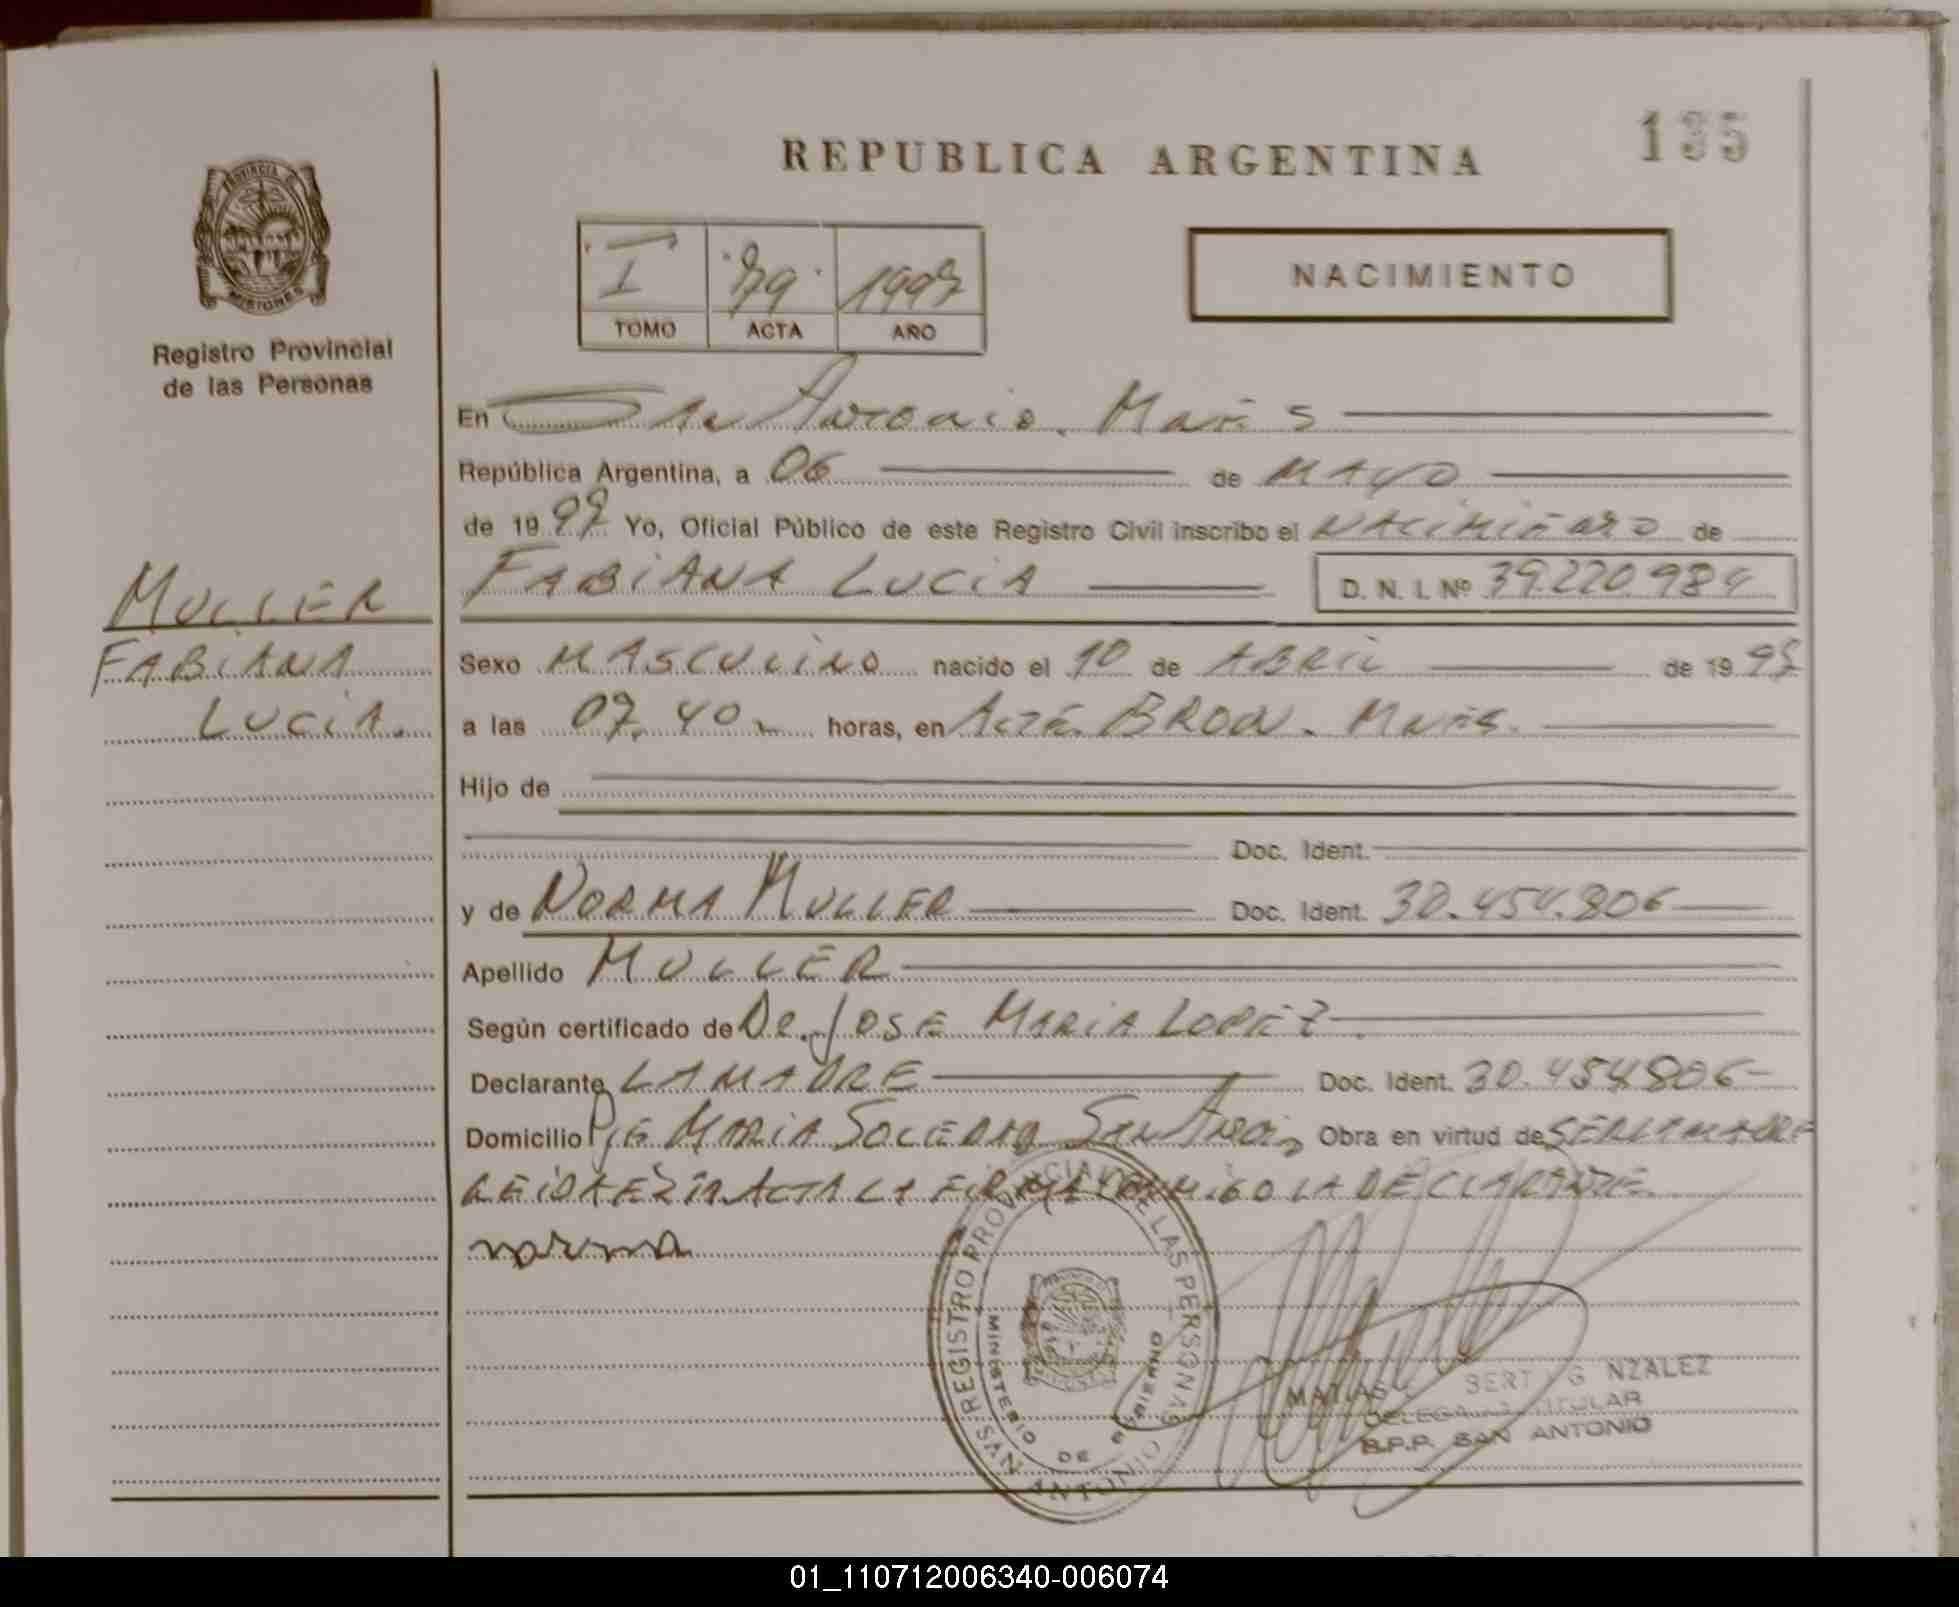 135
REPUBLICA ARGENTINA
PROVINCIA DE
MISIONES
Registro Provincial
de las Personas
I 79 1997
TOMO ACTA AÑO
NACIMIENTO
En San Antonio. Mnes
República Argentina, a 06 de MAYO
de 1997 Yo, Oficial Público de este Registro Civil inscribo el NACIMIENTO de
FABIANA LUCIA D. N. I. Nº 39.220.984
MULLER
FABIANA
LUCIA.
Sexo MASCULINO nacido el 10 de ABRIL de 1995
a las 07.40 horas, en ALTE. BROW. Mnes.
Hijo de
Doc. Ident.
y de NORMA MULLER Doc. Ident. 30.454.806
Apellido MULLER
Según certificado de DR. JOSE MARIA LOPEZ
Declarante LA MADRE Doc. Ident. 30.454806
Domicilio PJE MARIA SOLEDAD Obra en virtud de SER LA MADRE
LEIDA ESTA ACTA LA FIRMA CONMIGO LA DECLARANTE
norma
REGISTRO PROVINCIAL DE LAS PERSONAS
MINISTERIO DE GOBIERNO
SAN ANTONIO
MATIAS NZALEZ
TITULAR
R.P.P. SAN ANTONIO
01_110712006340-006074